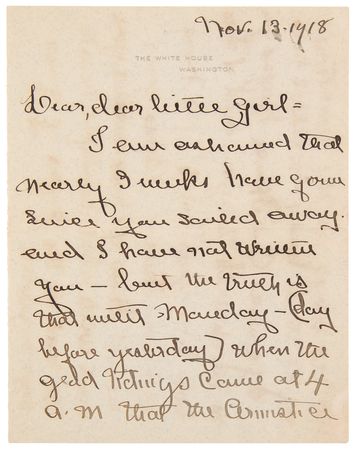 Nov. 13-1918
THE WHITE HOUSE
WASHINGTON
Dear, dear little Girl =
I am ashamed that
nearly 3 weeks have gone
since you sailed away.
and I have not written
you - but the truth is
that until Monday - (day
before yesterday) when the
glad tidings came at 4
a.m that the Armistice